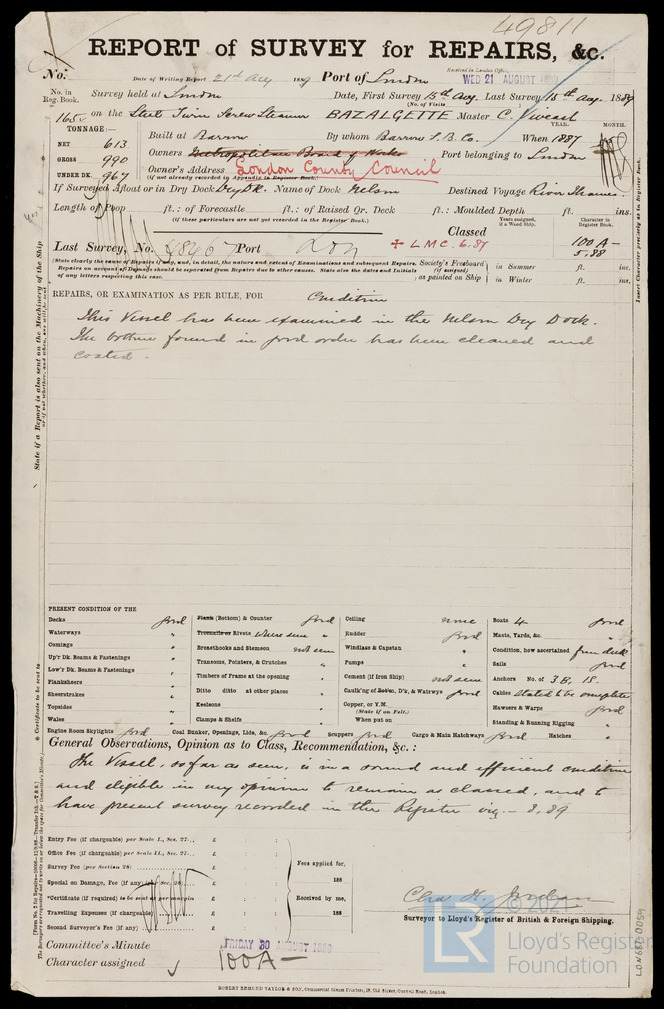 49811
REPORT of SURVEY for REPAIRS, &c.
No. Date of Writing Report 21st Aug 1889 Port of London Received in London Office WED 21 AUGUST 1889
No. in Reg. Book. Survey held at London Date, First Survey 15th Aug. Last Survey 15th Aug. 1889
(No. of Visits)
165 on the Steel Twin Screw Steamer BAZALGETTE Master C. Vincent
TONNAGE:— YEAR. MONTH.
NET 613 Built at Barrow By whom Barrow S. B. Co. When 1887
GROSS 990 Owners Metropolitan Board of Works Port belonging to London
London County Council
UNDER DK. 967 Owner's Address
(if not already recorded in Appendix to Register Book.)
If Surveyed Afloat or in Dry Dock Dry Dk. Name of Dock Nelson Destined Voyage River Thames.
Length of Poop ft.: of Forecastle ft.: of Raised Qr. Deck ft.: Moulded Depth ft. ins.
(if these particulars are not yet recorded in the Register Book.)
Years assigned, if a Wood Ship. Character in Register Book.
Classed
Last Survey, No. Port Lon ✠ L M C. 6. 87 100A— 5.88
(State clearly the cause of Repairs if any, and, in detail, the nature and extent of Examinations and subsequent Repairs. Society's Freeboard in Summer ft. ins.
Repairs on account of Damage should be separated from Repairs due to other causes. State also the dates and Initials (if assigned)
of any letters respecting this case.) as painted on Ship in Winter ft. ins.
REPAIRS, OR EXAMINATION AS PER RULE, FOR Condition
This Vessel has been examined in the Nelson Dry Dock.
The bottom found in good order has been cleaned and
coated.
PRESENT CONDITION OF THE
Decks good
Waterways "
Comings "
Up'r Dk. Beams & Fastenings "
Low'r Dk. Beams & Fastenings "
Planksheers "
Sheerstrakes "
Topsides "
Wales "
Plank (Bottom) & Counter good
Treenails or Rivets where seen "
Breasthooks and Stemson not seen
Transoms, Pointers, & Crutches "
Timbers of Frame at the opening "
Ditto ditto at other places "
Keelsons "
Clamps & Shelfs "
Ceiling none
Rudder good
Windlass & Capstan "
Pumps "
Cement (if Iron Ship) not seen
Caulk'ng of Bottm, D'k, & Watrwys good
Copper, or Y.M.
(State if on Felt.)
When put on
Boats 4 good
Masts, Yards, &c. "
Condition, how ascertained from deck
Sails good
Anchors No. of 3 B, 1 S.
Cables stated to be complete
Hawsers & Warps good
Standing & Running Rigging "
Engine Room Skylights good Coal Bunker, Openings, Lids, &c. good Scuppers good Cargo & Main Hatchways good Hatches "
General Observations, Opinion as to Class, Recommendation, &c.:
The Vessel, so far as seen, is in a sound and efficient condition
and eligible in my opinion to remain as classed, and to
have present survey recorded in the Register viz.— 8.89
Entry Fee (if chargeable) per Scale I., Sec. 27... £
Office Fee (if chargeable) per Scale II., Sec. 27... £
Survey Fee (per Section 28) £
Special on Damage, Fee (if any) (per Sec. 28) £
*Certificate (if required) to be sent as per margin
Travelling Expenses (if chargeable) £
Second Surveyor's Fee (if any) £
Fees applied for,
188
Received by me,
188
Chas H. Jordan
Surveyor to Lloyd's Register of British & Foreign Shipping.
Committee's Minute FRIDAY 30 AUGUST 1889
Character assigned 100A—
ROBERT EDMUND TAYLOR & SON, Commercial Steam Printers, 19, Old Street, Goswell Road, London.
State if a Report is also sent on the Machinery of the Ship
or if not, whether, and when, one will be sent.
Insert Character precisely as in Register Book.
© 2021
LR
Lloyd's Register
Foundation